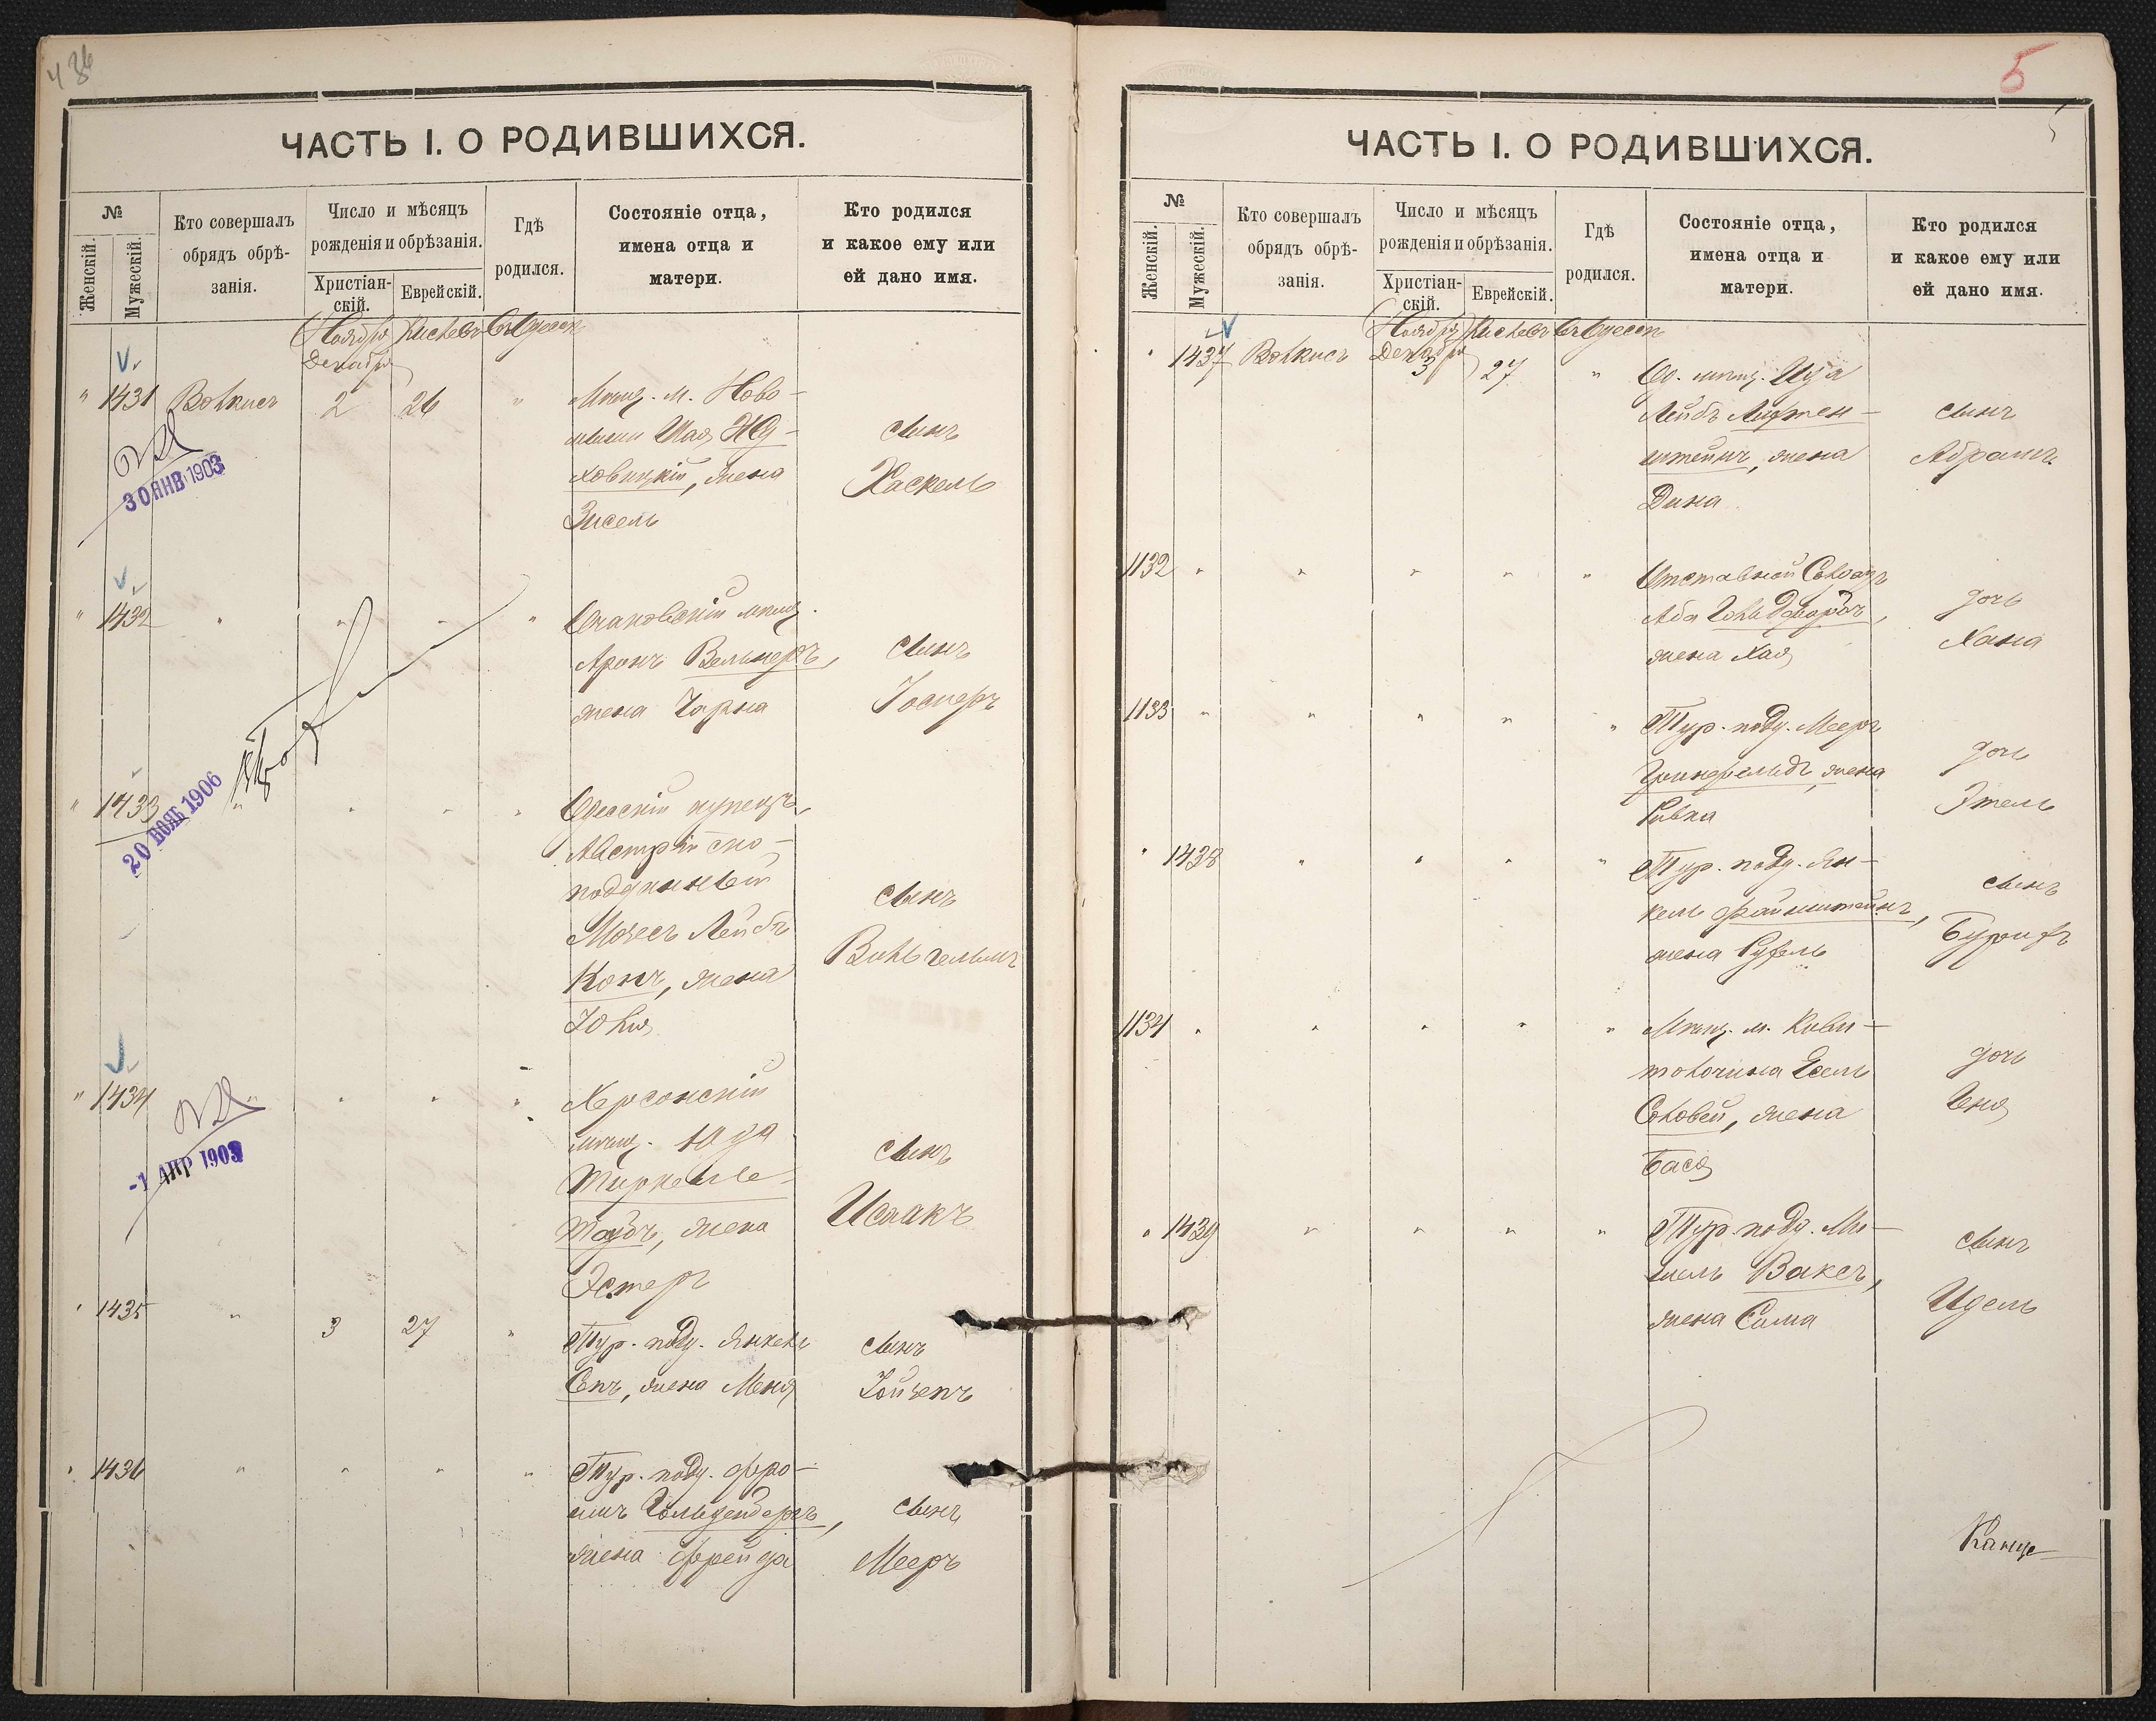 ЧАСТЬ I. О РОДИВШИХСЯ.
№
Женскій.
Мужескій.
Кто совершалъ
обрядъ обрѣ-
занія.
Число и мѣсяцъ
рожденія и обрѣзанія.
Христіан-
скій.
Еврейскій.
Гдѣ
родился.
Состояніе отца,
имена отца и
матери.
Кто родился
и какое ему или
ей дано имя.
Ноября Кислевъ Въ Одессѣ
Декабря
" 1431 Волкисъ 2 26 " Мѣщ. м. Ново-
Шая
ховицкій, жена
Зисель
сынъ
Хаскель
30 ЯНВ 1903
" 1432 " " " " Очаковскій мѣщ.
Аронъ Вельнеръ,
жена Чарна
сынъ
Іосиферъ
" 1433 " " " " Одесскій купецъ,
Австрійско-
подданный
Мозесъ Лейбъ
Конъ, жена
Юлія
сынъ
Вильгельмъ
20 НОЯБ 1906
" 1434 " " " " Херсонскій
мѣщ. Юда
Тиркель-
Таубъ, жена
Эстеръ
сынъ
Исаакъ
-1 АПР 1903
" 1435 " 3 27 " Тур. подд. Янкель
Сепъ, жена Меня
сынъ
" 1436 " " " " Тур. подд. Фро-
имъ Гольденбергъ,
жена Фрейда
сынъ
Мееръ
5
ЧАСТЬ I. О РОДИВШИХСЯ.
№
Женскій.
Мужескій.
Кто совершалъ
обрядъ обрѣ-
занія.
Число и мѣсяцъ
рожденія и обрѣзанія.
Христіан-
скій.
Еврейскій.
Гдѣ
родился.
Состояніе отца,
имена отца и
матери.
Кто родился
и какое ему или
ей дано имя.
Ноября Кислевъ Въ Одессѣ
Декабря
" 1437 Волкисъ 3 27 " Од. мѣщ. Шуа
Лейбъ Лихтен-
штейнъ, жена
Дина
сынъ
Абрамъ
1132 " " " " " Отставной Солдатъ
Аба Гольдфарбъ,
жена Хая
дочь
Хана
1133 " " " " " Тур. подд. Мееръ
Гринфельдъ, жена
Ривка
дочь
Этель
" 1438 " " " " Тур. подд. Ян-
кель Файнштейнъ,
жена Рухель
сынъ
Бурихъ
1134 " " " " " Мѣщ. м. Криви-
толочина Іосель
Соловей, жена
Бася
дочь
Геня
" 1439 " " " " Тур. подд. Ми-
хель Ваксъ,
жена Сима
сынъ
Идель